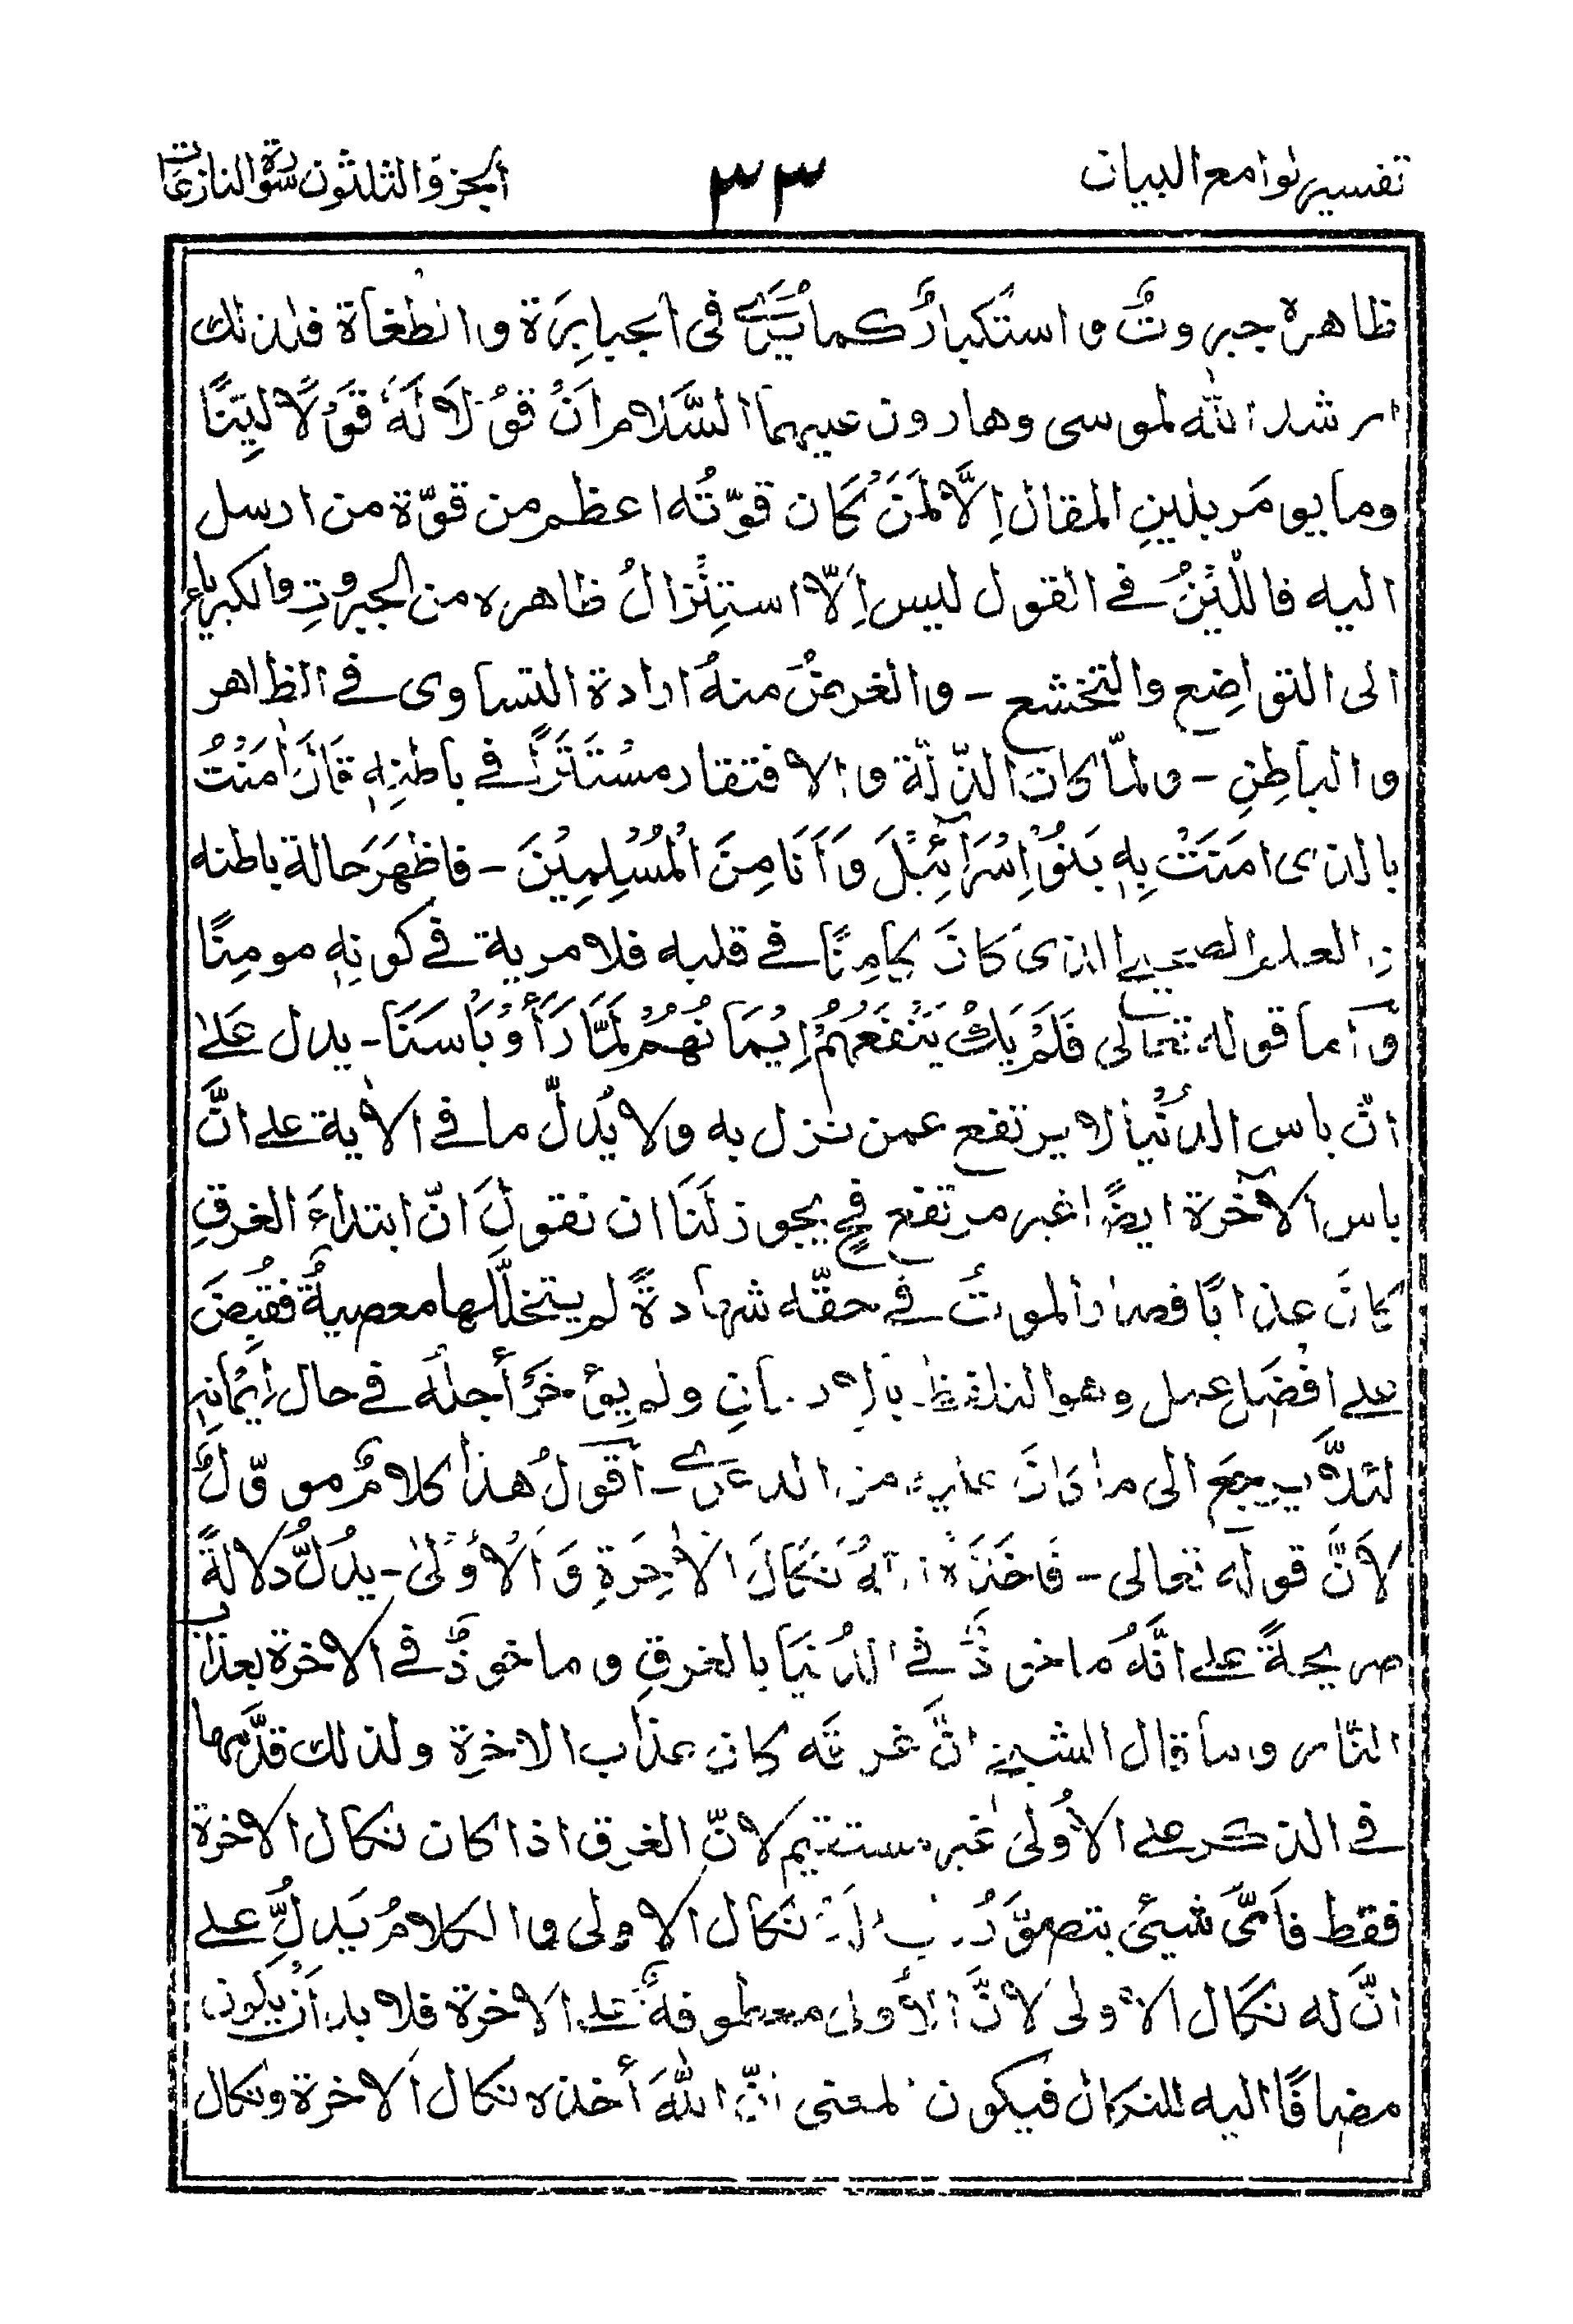 تفسير لوامع البيان ٣٣ الجزو الثلثون سورة النازعات
ظاهره جبروتٌ و استكبارٌ كما يُرٰى فى الجبابرة و الطغاة فلذلك
ارشد الله لموسى وهارون عليهما السَّلام اَنْ قُوْلَا لَهٗ قَوْلًا لَيِّنًا
وما يومَر بلينِ المقال اِلَّا لمَنْ كان قوّتُه اعظم من قوّة من ارسل
اليه فاللّيْنُ فے القول ليس اِلّا استِنْزالُ ظاهره من الجبروتِ والكبرياء
الى التواضِع والتخشع - والغرضُ منهُ ارادة التساوى فے الظاهر
و الباطِنِ - ولمّا كان الذّلّة و الافتقار مسْتَتَرًا فے باطنِهٖ قَالَ اٰمَنْتُ
بالذى امَنَتْ بِهٖ بَنُوْا اِسْرَآئِيْلَ وَ اَنَا مِنَ الْمُسْلِمِيْنَ - فاظهَرَ حالة باطنه
العلم الصحيح الذى كانَ كامِنًا فے قلبه فلا مرية فے كونِهٖ مومِنًا
وَ اَما قوله تعالى فَلَمْ يَكُ يَنْفَعُهُمْ اِيْمَانُهُمْ لَمَّا رَأَوْ بَاْسَنَا - يدل عَلىٰ
انّ باس الدُنْيا لا يرتفع عمن نزل به ولا يَدلّ ما فے الاٰية علے انَّ
باس الآخرة ايضًا غير مرتفع فح يجوز لَنَا ان نقولَ انّ ابتداءَ الغرقِ
كانَ عذابًا فصار الموتُ فے حقّه شهادةً لم يتخلّلها معصيةٌ فقُبِضَ
علے افضَل عمل وهو التلفظ بالايمانِ ولم يؤخَرْ أجلُه فے حال اِيْمَانِهٖ
لئلّا يرجعَ الى ما كانَ عليه من الدعوٰے - أقولُ هذا كلامٌ موّلٌ
لاَنَّ قوله تعالى - فَاَخَذَهُ اللهُ نَكَالَ الْاٰخِرَةِ وَ الْاُوْلٰى - يدُلُّ دلالةً
صريحةً علے انَّهُ ماخوذٌ فے الدُنيَا بالغرقِ و ماخوذٌ فے الاخرة بعذاب
النّار وما قال الشيخ انَّ غرقَه كان عذاب الاخرةِ ولذلك قدَّمها
فے الذكر علے الاُولىٰ غير مستقيم لانّ الغرق اذا كان نكال الاخرة
فقط فاَىُّ شيئ يتصوَّرُ نكال الاولى و الكلامُ يَدلُّ علے
انَّ له نكال الاولى لانَّ الاُولى معطوفةٌ علے الاخرة فلا بد اَنْ يكون
مضافًا اليه للنكال فيكون المعنى انّ اللهَ أخذه نكال الاخرة ونكال